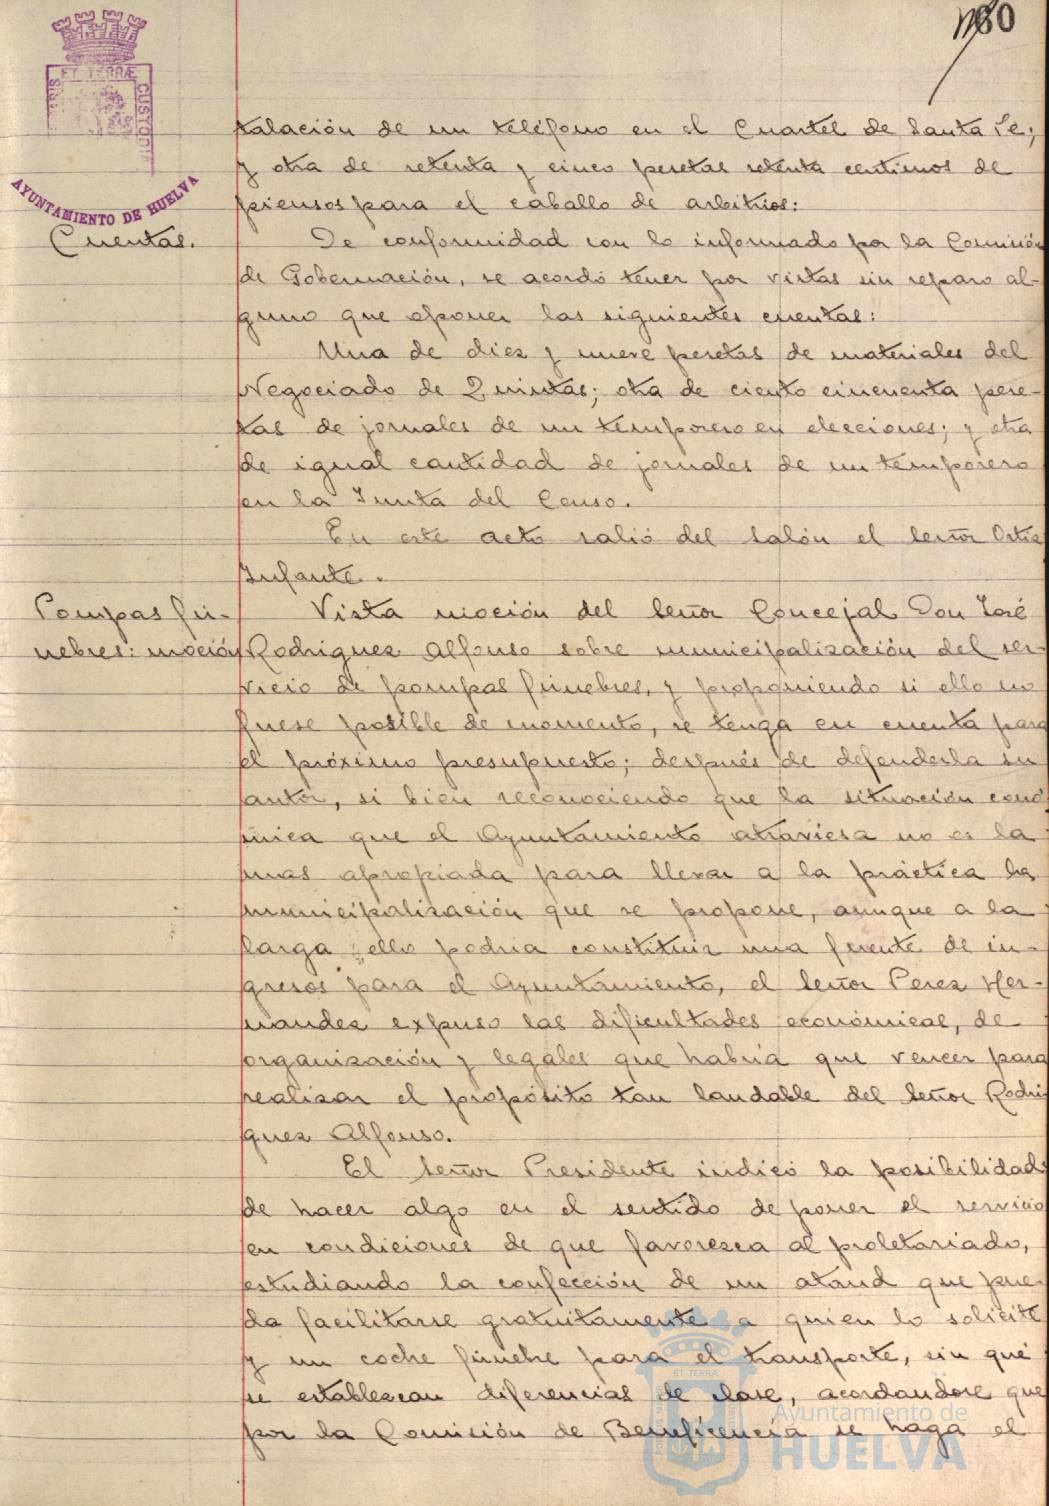 80
ET TERRÆ
CUSTODI
AYUNTAMIENTO DE HUELVA
talación de un teléfono en el Cuartel de Santa Fe;
y otra de setenta y cinco pesetas setenta centimos de
piensos para el caballo de arbitrios:
Cuentas.
De conformidad con lo informado por la Comisión
de Gobernación, se acordó tener por vistas sin reparo al-
guno que oponer las siguientes cuentas:
Una de diez y nueve pesetas de materiales del
Negociado de Quintas; otra de ciento cincuenta pese-
tas de jornales de un temporero en elecciones; y otra
de igual cantidad de jornales de un temporero
en la Junta del Censo.
En este acto salió del salón el señor Ortiz
Infante.
Pompas fú-
nebres: moción
Vista moción del Señor Concejal Don José
Rodriguez Alfonso sobre municipalización del ser-
vicio de pompas fúnebres, y proponiendo si ello no
fuese posible de momento, se tenga en cuenta para
el próximo presupuesto; después de defenderla su
autor, si bien reconociendo que la situación econó
mica que el Ayuntamiento atraviesa no es la
mas apropiada para llevar a la práctica la
municipalización que se propone, aunque a la
larga ello podria constituir una fuente de in-
gresos para el Ayuntamiento, el Señor Perez Her-
nandez expuso las dificultades económicas, de
organización y legales que habria que vencer para
realizar el propósito tan laudable del Señor Rodri-
guez Alfonso.
El Señor Presidente indicó la posibilidad
de hacer algo en el sentido de poner el servicio
en condiciones de que favorezca al proletariado,
estudiando la confección de un ataud que pue-
da facilitarse gratuitamente a quien lo solicite
y un coche fúnebre para el transporte, sin que
se establezcan diferencias de clase, acordandose que
por la Comisión de Beneficencia se haga el
Ayuntamiento de
HUELVA